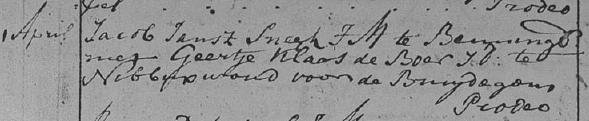 Prodeo
1 April Jacob Jansz Sneek J M te Benningb:
met Geertje Klaas de Boer J:D: te
Nibbixwoud voor de Bruydegom
Prodeo